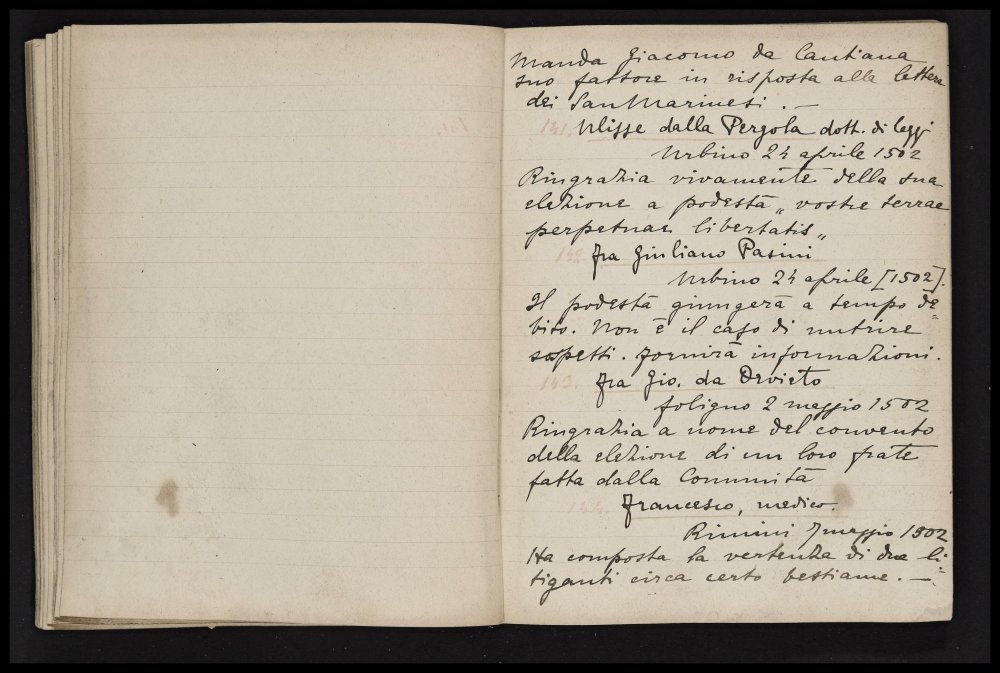 Manda Giacomo da Cantiana
suo fattore in risposta alla lettera
dei San Marinesi . —
141. Ulisse dalla Pergola dott. di leggi
Urbino 24 aprile 1502
Ringrazia vivamente della sua
elezione a podestà „ vostre terrae
perpetuae libertatis „
142. fra Giuliano Pasini
Urbino 24 aprile [1502].
Il podestà giungerà a tempo de=
bito. Non è il caso di nutrire
sospetti. Fornirà informazioni.
143. Fra Gio. da Orvieto
Foligno 2 maggio 1502
Ringrazia a nome del convento
della elezione di un loro frate
fatta dalla Comunità
144. Francesco, medico.
Rimini 7 maggio 1502
Ha composta la vertenza di due li=
tiganti circa certo bestiame. —